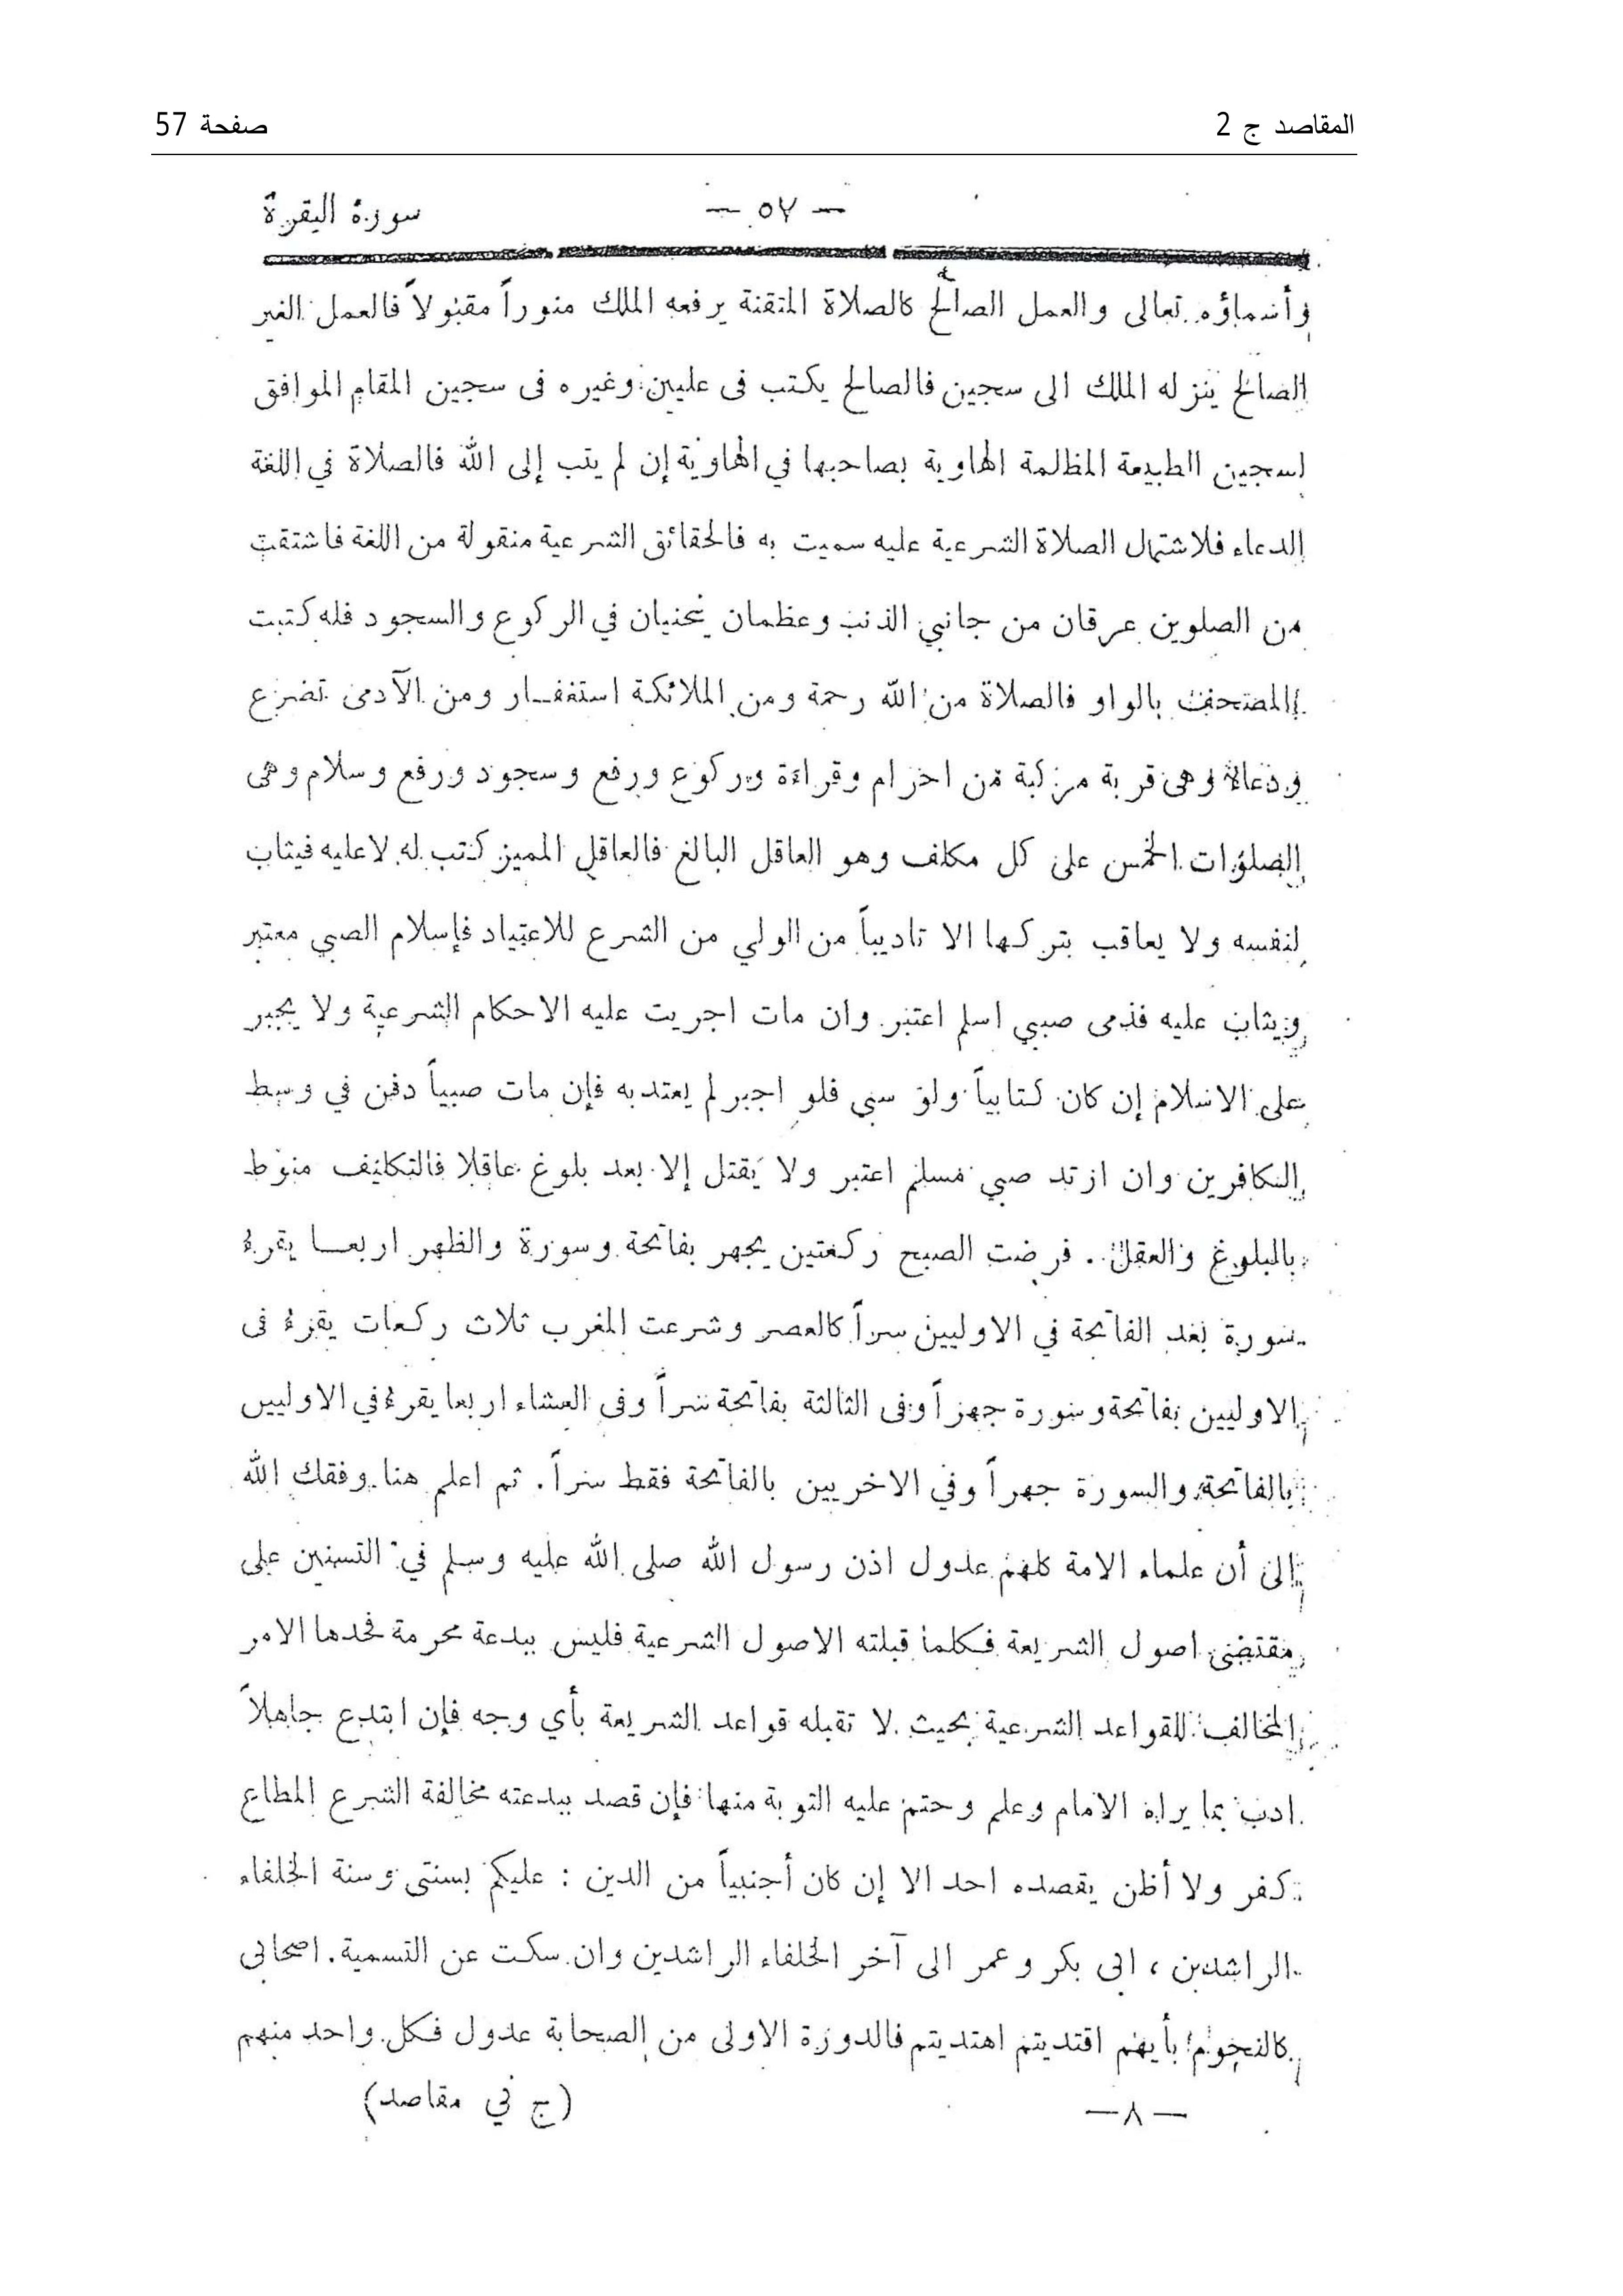 المقاصد ج 2
صفحة 57
— ٥٧ —
سورة البقرة
وأسماؤه تعالى والعمل الصالح كالصلاة المتقنة يرفعه الملك منوراً مقبولاً فالعمل الغير
الصالح ينزله الملك الى سجين فالصالح يكتب فى عليين وغيره فى سجين المقام الموافق
لسجين الطبيعة المظالمة الهاوية بصاحبها في الهاوية إن لم يتب إلى الله فالصلاة في اللغة
الدعاء فلاشتمال الصلاة الشرعية عليه سميت به فالحقائق الشرعية منقولة من اللغة فاشتقت
من الصلوين عرقان من جانبي الذنب وعظمان ينحنيان في الركوع والسجود فله كتبت
بالواو فالصلاة من الله رحمة ومن الملائكة استغفـار ومن الآدمى تضرع
ودعاء وهى قربة مركبة من احرام وقراءة وركوع ورفع وسجود ورفع وسلام وهى
الصلوات الخمس على كل مكلف وهو العاقل البالغ فالعاقل المميز كتب له لا عليه فيثاب
لنفسه ولا يعاقب بتركها الا تاديباً من الولي من الشرع للاعتياد فإسلام الصبي معتبر
ويثاب عليه فذمى صبي اسلم اعتبر وان مات اجريت عليه الاحكام الشرعية ولا يجبر
على الاسلام إن كان كتابياً ولو سبي فلو اجبر لم يعتد به فإن مات صبياً دفن في وسط
الكافرين وان ارتد صبي مسلم اعتبر ولا يقتل إلا بعد بلوغ عاقلا فالتكليف منوط
بالبلوغ والعقل . فرضت الصبح ركعتين يجهر بفاتحة وسورة والظهر اربعـا يقرء
سورة بعد الفاتحة في الاوليين سراً كالعصر وشرعت المغرب ثلاث ركعات يقرء فى
الاوليين بفاتحة وسورة جهراً وفى الثالثة بفاتحة سراً وفى العشاء اربعا يقرء في الاوليين
بالفاتحة والسورة جهراً وفي الاخريين بالفاتحة فقط سراً . ثم اعلم هنا وفقك الله
إلى أن علماء الامة كلهم عدول اذن رسول الله صلى الله عليه وسلم في التسنين على
مقتضى اصول الشريعة فكلما قبلته الاصول الشرعية فليس ببدعة محرمة فحدها الامر
المخالف للقواعد الشرعية بحيث لا تقبله قواعد الشريعة بأي وجه فإن ابتدع جاهلاً
ادب بما يراه الامام وعلم وحتم عليه التوبة منها فإن قصد ببدعته مخالفة الشرع المطاع
كفر ولا أظن يقصده احد الا إن كان أجنبياً من الدين : عليكم بسنتى وسنة الخلفاء
الراشدين ، ابى بكر وعمر الى آخر الخلفاء الراشدين وان سكت عن التسمية . اصحابى
كالنجوم بأيهم اقتديتم اهتديتم فالدورة الاولى من الصحابة عدول فكل واحد منهم
— ٨ —
(ج في مقاصد)